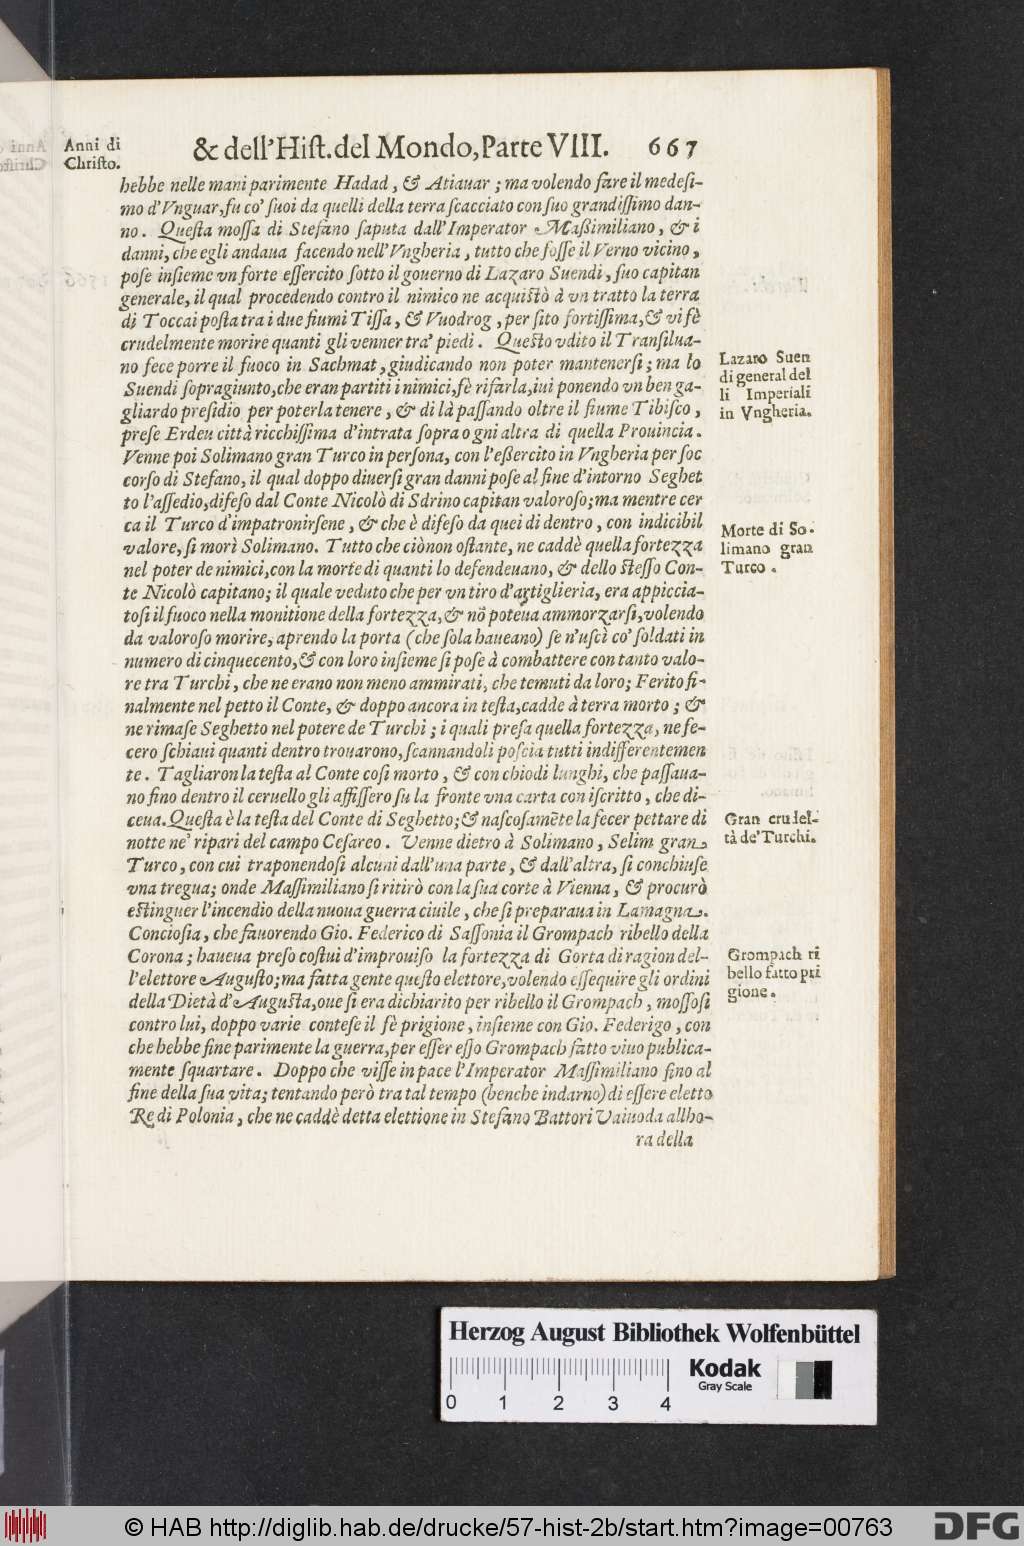 Anni di
Chriſto.
& dell'Hiſt. del Mondo, Parte VIII. 667
hebbe nelle mani parimente Hadad, & Atiauar; ma volendo fare il medeſi-
mo d'Vnguar, fu co' ſuoi da quelli della terra ſcacciato con ſuo grandiſſimo dan-
no. Queſta moſſa di Stefano ſaputa dall'Imperator Maßimiliano, & i
danni, che egli andaua facendo nell'Vngheria, tutto che foſſe il Verno vicino,
poſe inſieme vn forte eſſercito ſotto il gouerno di Lazaro Suendi, ſuo capitan
generale, il qual procedendo contro il nimico ne acquiſtò à vn tratto la terra
di Toccai poſta tra i due fiumi Tiſſa, & Vuodrog, per ſito fortiſſima, & vi fè
crudelmente morire quanti gli venner tra' piedi. Queſto vdito il Tranſilua-
no fece porre il fuoco in Sachmat, giudicando non poter mantenerſi; ma lo
Suendi ſopragiunto, che eran partiti i nimici, fè rifarla, iui ponendo vn ben ga-
gliardo preſidio per poterla tenere, & di là paſſando oltre il fiume Tibiſco,
preſe Erdeu città ricchiſſima d'intrata ſopra ogni altra di quella Prouincia.
Venne poi Solimano gran Turco in perſona, con l'eßercito in Vngheria per ſoc
corſo di Stefano, il qual doppo diuerſi gran danni poſe al fine d'intorno Seghet
to l'aſſedio, difeſo dal Conte Nicolò di Sdrino capitan valoroſo; ma mentre cer
ca il Turco d'impatronirſene, & che è difeſo da quei di dentro, con indicibil
valore, ſi morì Solimano. Tutto che ciò non oſtante, ne caddè quella fortezza
nel poter de nimici, con la morte di quanti lo defendeuano, & dello ſteſſo Con-
te Nicolò capitano; il quale veduto che per vn tiro d'artiglieria, era appiccia-
toſi il fuoco nella monitione della fortezza, & nõ poteua ammorzarſi, volendo
da valoroſo morire, aprendo la porta (che ſola haueano) ſe n'uſcì co' ſoldati in
numero di cinquecento, & con loro inſieme ſi poſe à combattere con tanto valo-
re tra Turchi, che ne erano non meno ammirati, che temuti da loro; Ferito fi-
nalmente nel petto il Conte, & doppo ancora in teſta, cadde à terra morto; &
ne rimaſe Seghetto nel potere de Turchi; i quali preſa quella fortezza, ne fe-
cero ſchiaui quanti dentro trouarono, ſcannandoli poſcia tutti indifferentemen
te. Tagliaron la teſta al Conte coſi morto, & con chiodi lunghi, che paſſaua-
no fino dentro il ceruello gli affiſſero ſu la fronte vna carta con iſcritto, che di-
ceua. Queſta è la teſta del Conte di Seghetto; & naſcoſamẽte la fecer pettare di
notte ne' ripari del campo Ceſareo. Venne dietro à Solimano, Selim gran
Turco, con cui traponendoſi alcuni dall'una parte, & dall'altra, ſi conchiuſe
vna tregua; onde Maſſimiliano ſi ritirò con la ſua corte à Vienna, & procurò
eſtinguer l'incendio della nuoua guerra ciuile, che ſi preparaua in Lamagna.
Concioſia, che fauorendo Gio. Federico di Saſſonia il Grompach ribello della
Corona; haueua preſo coſtui d'improuiſo la fortezza di Gorta di ragion del-
l'elettore Auguſto; ma fatta gente queſto elettore, volendo eſſequire gli ordini
della Dietà d'Auguſta, oue ſi era dichiarito per ribello il Grompach, moſſoſi
contro lui, doppo varie conteſe il fè prigione, inſieme con Gio. Federigo, con
che hebbe fine parimente la guerra, per eſſer eſſo Grompach fatto viuo publica-
mente ſquartare. Doppo che viſſe in pace l'Imperator Maſſimiliano fino al
fine della ſua vita; tentando però tra tal tempo (benche indarno) di eſſere eletto
Re di Polonia, che ne caddè detta elettione in Stefano Battori Vaiuoda allho-
ra della
Lazaro Suen
di general del
li Imperiali
in Vngheria.
Morte di So-
limano gran
Turco.
Gran crudel-
tà de' Turchi.
Grompach ri
bello fatto pri
gione.
Herzog August Bibliothek Wolfenbüttel
0 1 2 3 4
Kodak
Gray Scale
© HAB http://diglib.hab.de/drucke/57-hist-2b/start.htm?image=00763
DFG